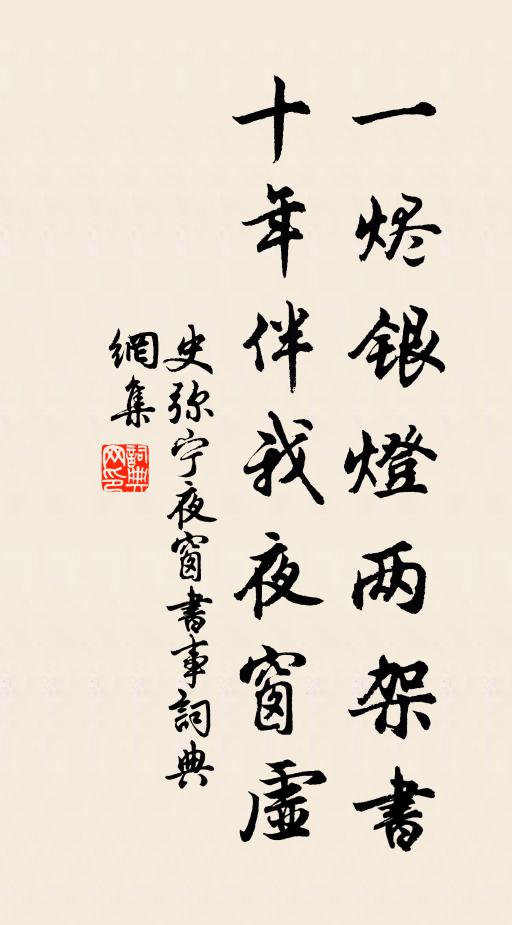 一烬银燈两架書
十年伴我夜窗虛
史弥宁夜窗書事詞典
網集
詞典網印